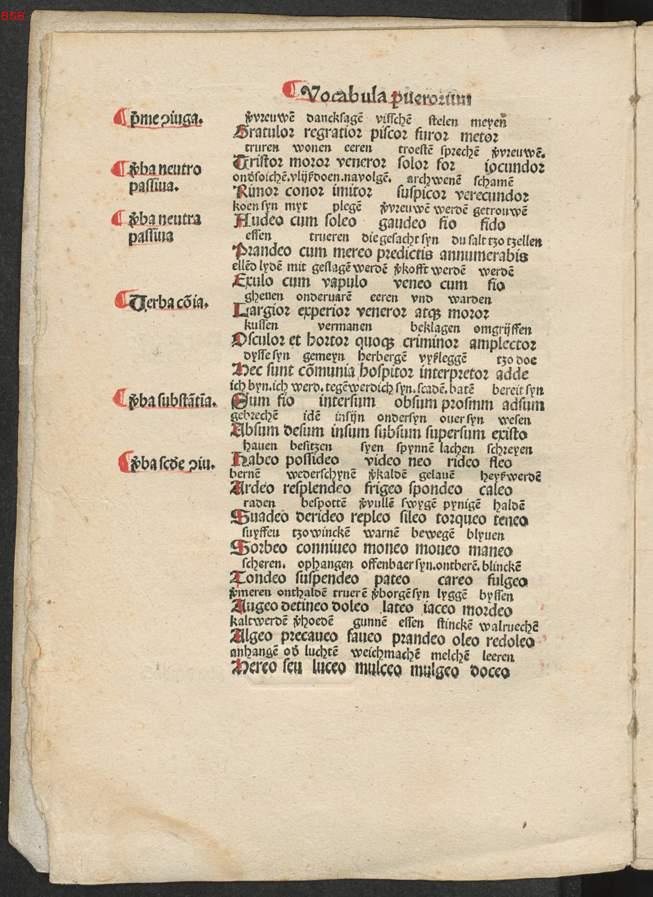 658
Vocabula puerorum
p̄me ɔiuga.
v̄vreuwē dancksagē visschē stelen meyen
Gratulor regratior piscor furor metor
truren wonen eeren troestē sprechē v̄vreuwē.
Tristor moror veneror solor for iocundor
v̄ba neutro
passiua.
archwenē schamē
Rimor conor imitor suspicor verecundor
koen syn myt plegē v̄vreuwē werdē getrouwē
v̄ba neutra
passiua
Audeo cum soleo gaudeo fio fido
essen trueren die gesacht syn du salt tzo tzellen
Prandeo cum mereo predictis annumerabis
ellēd lydē mit geslagē werdē v̄kofft werdē werdē
Exulo cum vapulo veneo cum fio
Verba cōia.
gheuen onderuarē eeren vnd warden
Largior experior veneror atqꝫ moror
kussen vermanen beklagen omgrijffen
Osculor et hortor quoqꝫ criminor amplector
dysse syn gemeyn herbergē vyßleggē tzo doe
Hec sunt cōmunia hospitor interpretor adde
ich byn. ich werd. tegēwerdich syn. scadē. batē bereit syn
v̄ba substātia.
Sum fio intersum obsum prosum adsum
gebrechē idē insijn ondersyn ouer syn wesen
Absum desum insum subsum supersum existo
hauen besitzen syen spynnē lachen schreyen
v̄ba scd̄e ɔiu.
Habeo possideo video neo rideo fleo
bernē wederschynē v̄kaldē gelauē heyß werdē
Ardeo resplendeo frigeo spondeo caleo
raden bespottē v̄vullē swygē pynigē haldē
Suadeo derideo repleo sileo torqueo teneo
suyffen tzowinckē warnē bewegē blyuen
Sorbeo conniueo moneo moueo maneo
scheren. ophangen offenbaer syn. ontberē. blinckē
Tondeo suspendeo pateo careo fulgeo
v̄meren onthaldē truerē v̄borgē syn lyggē byssen
Augeo detineo doleo lateo iaceo mordeo
kalt werdē v̄hoedē gunnē essen stinckē wal ruechē
Algeo precaueo faueo prandeo oleo redoleo
anhangē od̄ luchtē weichmachē melchē leeren
Hereo seu luceo mulceo mulgeo doceo